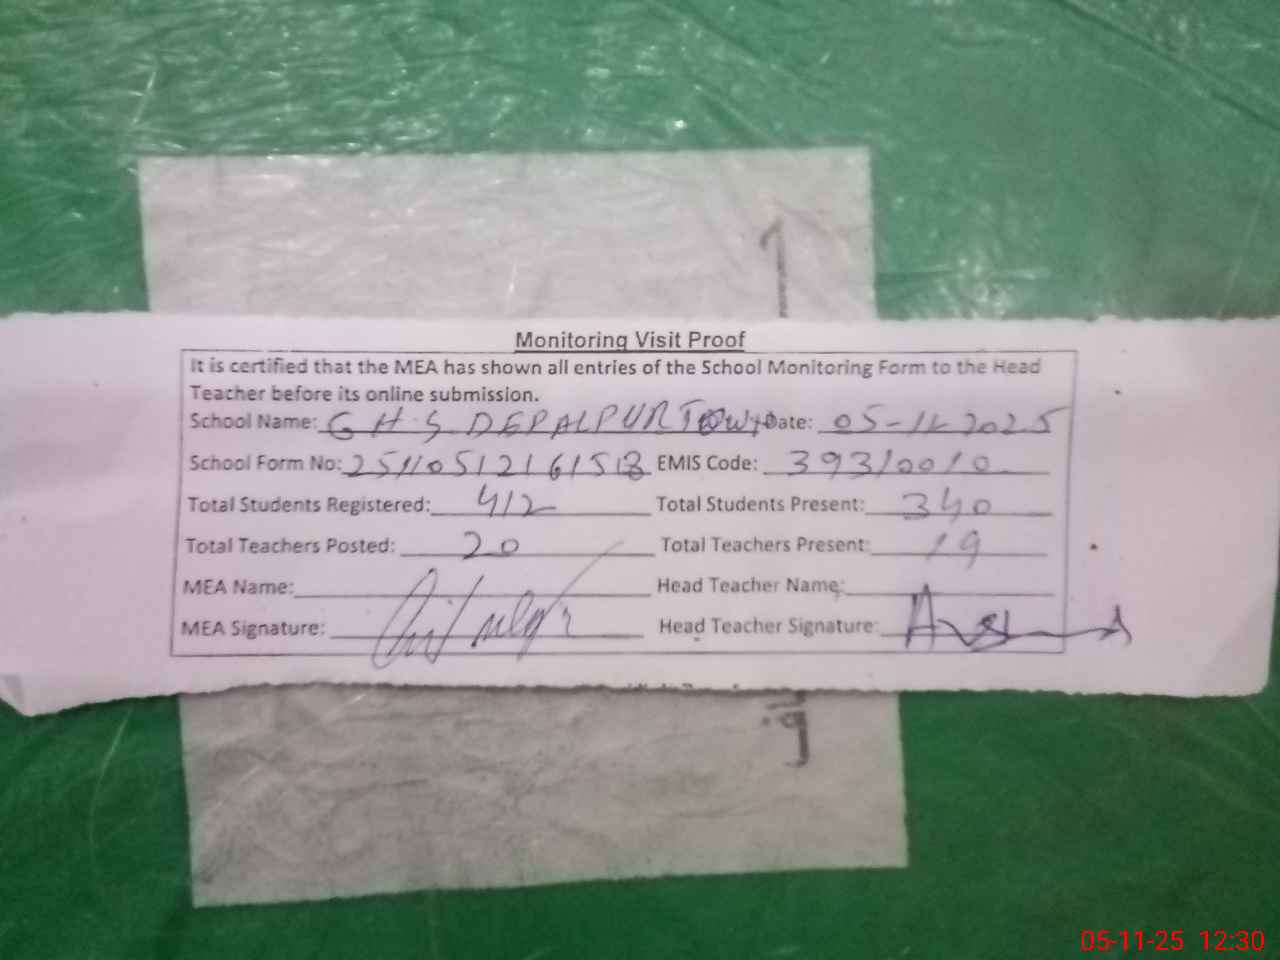 Monitoring Visit Proof
It is certified that the MEA has shown all entries of the School Monitoring Form to the Head
Teacher before its online submission.
School Name: G H S DEPALPUR TOWN Date: 05-11-2025
School Form No: 25110512161518 EMIS Code: 39310010
Total Students Registered: 412 Total Students Present: 340
Total Teachers Posted: 20 Total Teachers Present: 19
MEA Name: Head Teacher Name:
MEA Signature: Head Teacher Signature:
05-11-25 12:30